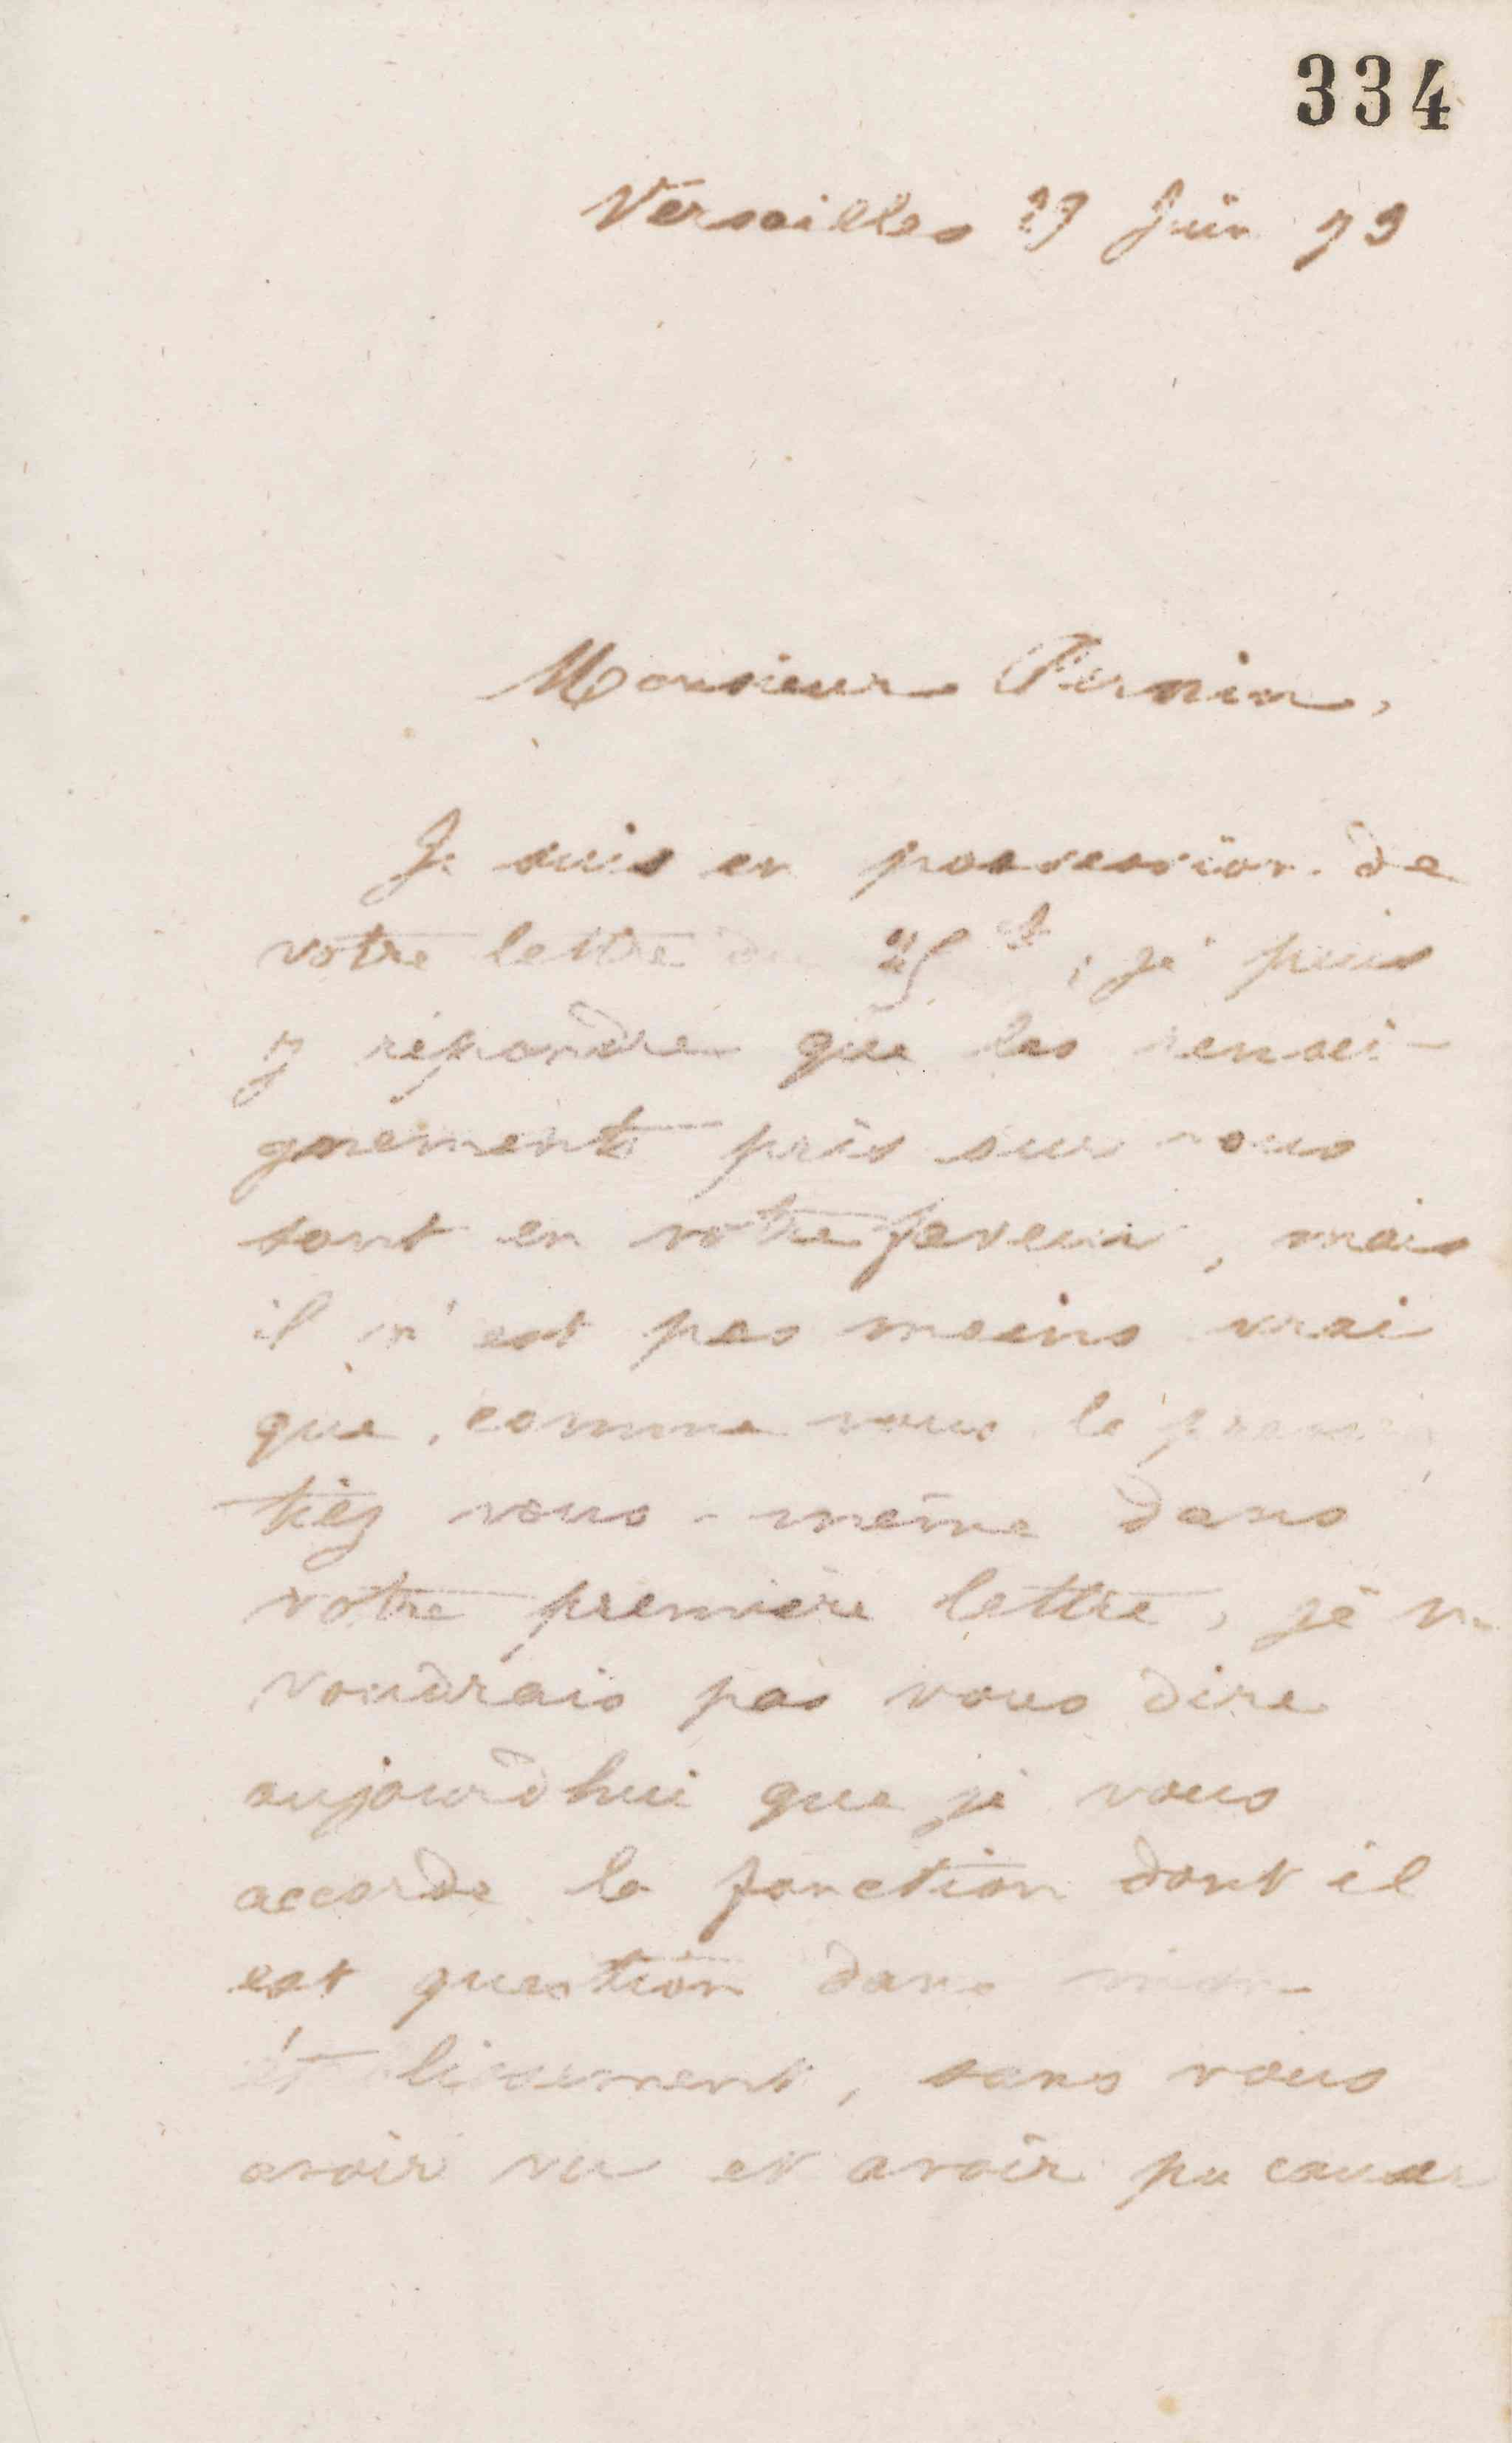 334
Versailles 27 Juin 79
Monsieur Pernin,
Je suis en possession de
votre lettre du 25 ct, je puis
y répondre que les rensei-
gnements pris sur vous
sont en votre faveur, mais
il n'est pas moins vrai
que, comme vous le pressen-
tiez vous-même dans
votre première lettre, je ne
voudrais pas vous dire
aujourd'hui que je vous
accorde la fonction dont il
est question dans mon
établissement, sans vous
avoir vu et avoir pu causer